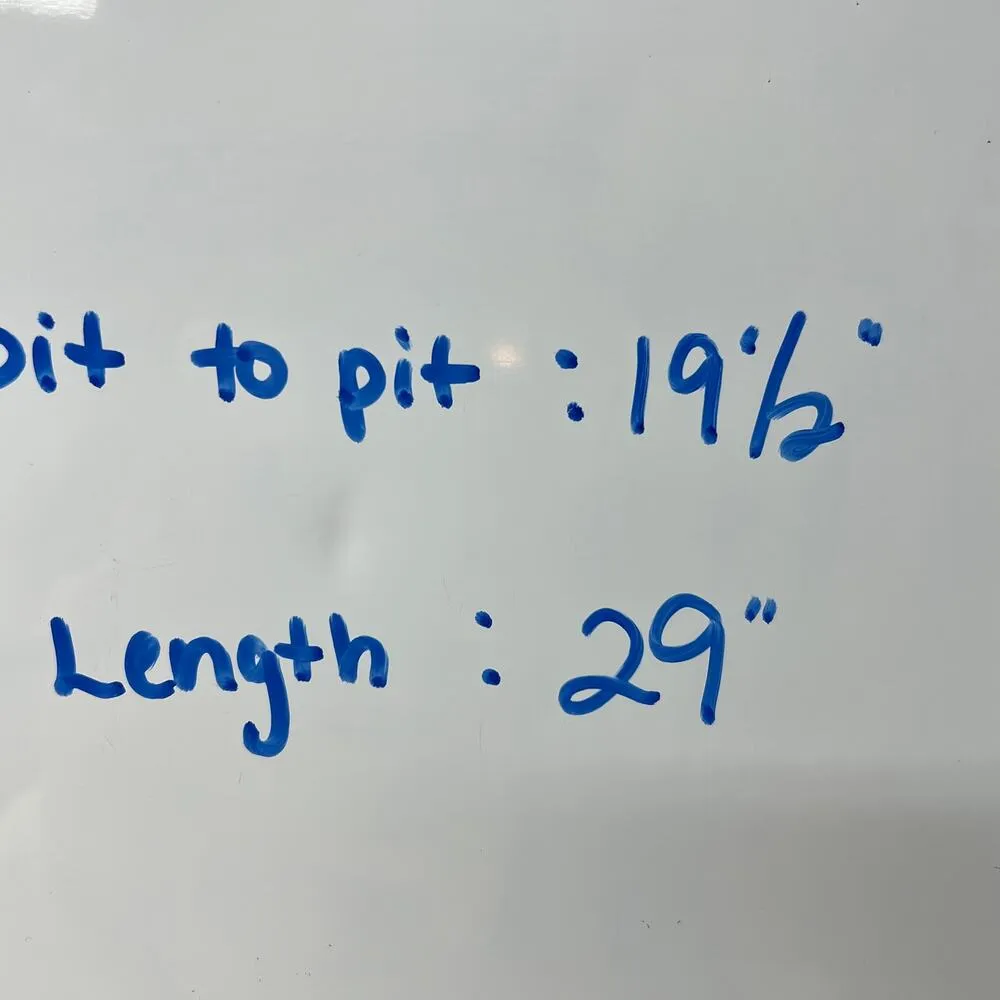 pit to pit : 19 1/2"
Length : 29"